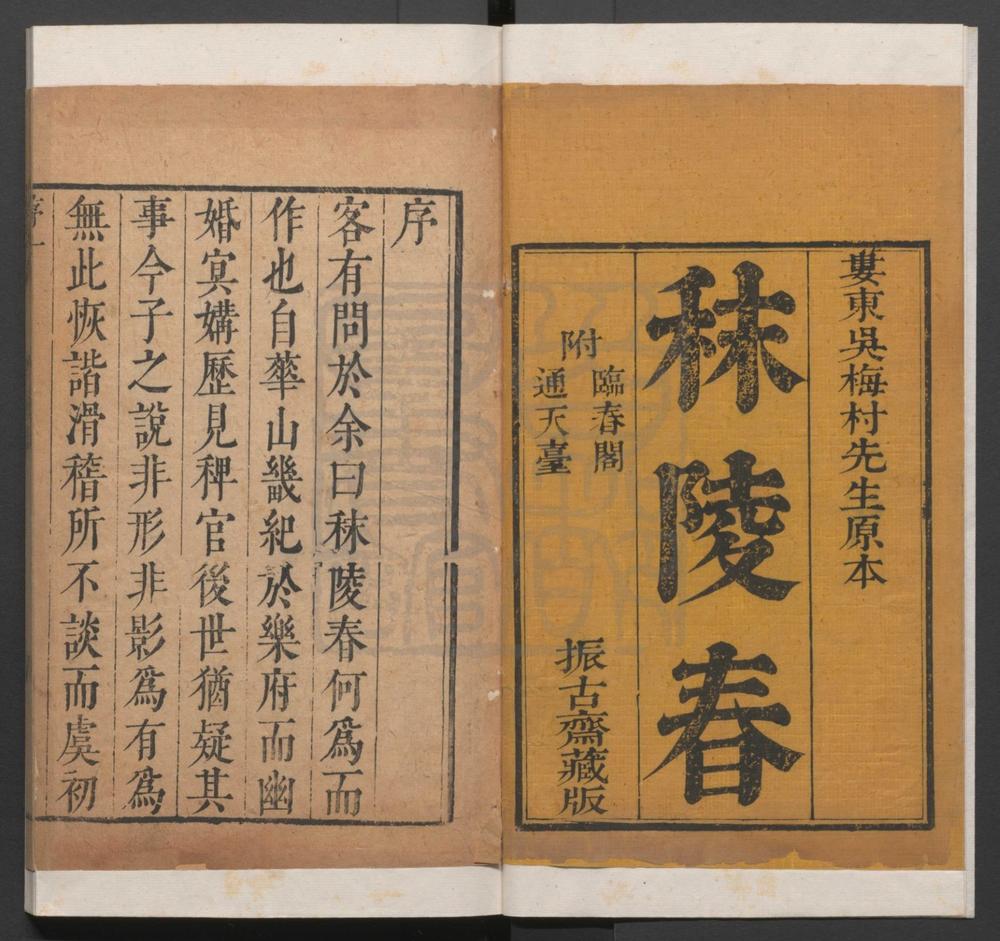 婁東吳梅村先生原本
秣陵春
附
臨春閣
通天臺
振古齋藏版
序
客有問於余曰秣陵春何爲而
作也自華山畿紀於樂府而幽
婚冥媾歷見稗官後世猶疑其
事今子之說非形非影爲有爲
無此恢諧滑稽所不談而虞初
序一